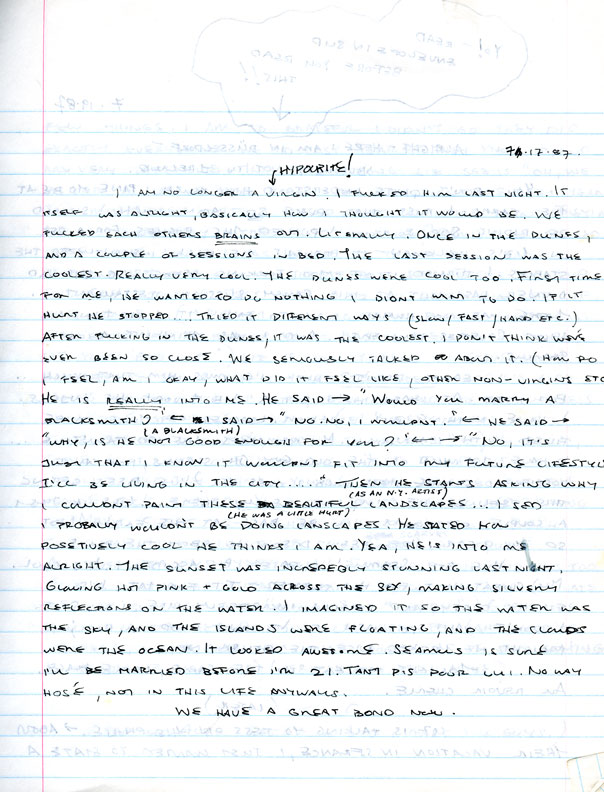 Yo! - READ
ENVELOPE IN BLIP
BEFORE YOU READ
THIS!!
7.19.87
7.17.87.
HYPOCRITE!
I AM NO LONGER A VIRGIN. I FUCKED HIM LAST NIGHT. IT
ITSELF WAS ALRIGHT, BASICALLY HOW I THOUGHT IT WOULD BE. WE
FUCKED EACH OTHERS BRAINS OUT. LITERALLY. ONCE IN THE DUNES,
AND A COUPLE OF SESSIONS IN BED. THE LAST SESSION WAS THE
COOLEST. REALLY VERY COOL. THE DUNES WERE COOL TOO. FIRST TIME
FOR ME, HE WANTED TO DO NOTHING I DIDNT WANT TO DO. IF IT
HURT HE STOPPED... TRIED IT DIFFERENT WAYS (SLOW/FAST/HARD ETC.)
AFTER FUCKING IN THE DUNES, IT WAS THE COOLEST. I DON'T THINK WE'VE
EVER BEEN SO CLOSE. WE SERIOUSLY TALKED ABOUT IT. (HOW DO
I FEEL, AM I OKAY, WHAT DID IT FEEL LIKE, OTHER NON-VIRGINS ETC
HE IS REALLY INTO ME. HE SAID → "WOULD YOU MARRY A
BLACKSMITH?" ← I SAID → "NO. NO, I WOULDNT." ← HE SAID →
(A BLACKSMITH)
"WHY, IS HE NOT GOOD ENOUGH FOR YOU?" ← → "NO, IT'S
JUST THAT I KNOW IT WOULDNT FIT INTO MY FUTURE LIFESTYLE
I'LL BE LIVING IN THE CITY...." THEN HE STARTS ASKING WHY
(AS AN N.Y. ARTIST)
I COULDNT PAINT THESE BEAUTIFUL LANDSCAPES... I SED
(HE WAS A LITTLE HURT)
I PROBALLY WOULDN'T BE DOING LANSCAPES. HE STATED HOW
POSETIVELY COOL HE THINKS I AM. YEA, HE'S INTO ME
ALRIGHT. THE SUNSET WAS INCREDEBLY STUNNING LAST NIGHT.
GLOWING HOT PINK + GOLD ACROSS THE SKY, MAKING SILVERY
REFLECTIONS ON THE WATER. I IMAGINED IT SO THE WATER WAS
THE SKY, AND THE ISLANDS WERE FLOATING, AND THE CLOUDS
WERE THE OCEAN. IT LOOKED AWESOME. SEAMUS IS SURE
I'LL BE MARRIED BEFORE I'M 21. TANT PIS POUR LUI. NO WAY
HOSÉ, NOT IN THIS LIFE ANYWAYS.
WE HAVE A GREAT BOND NOW.